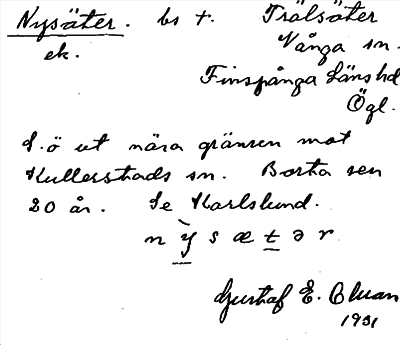 Nysäter. bs t. Trälsäter
ek. Vånga sn.
Finspånga länshd
Ögl.
S.ö ut nära gränsen mot
Kullerstads sn. Borta sen
20 år. Se Karlslund.
n ỳ̠ s æ t̠ ə r
Gustaf E. Oluan
1931